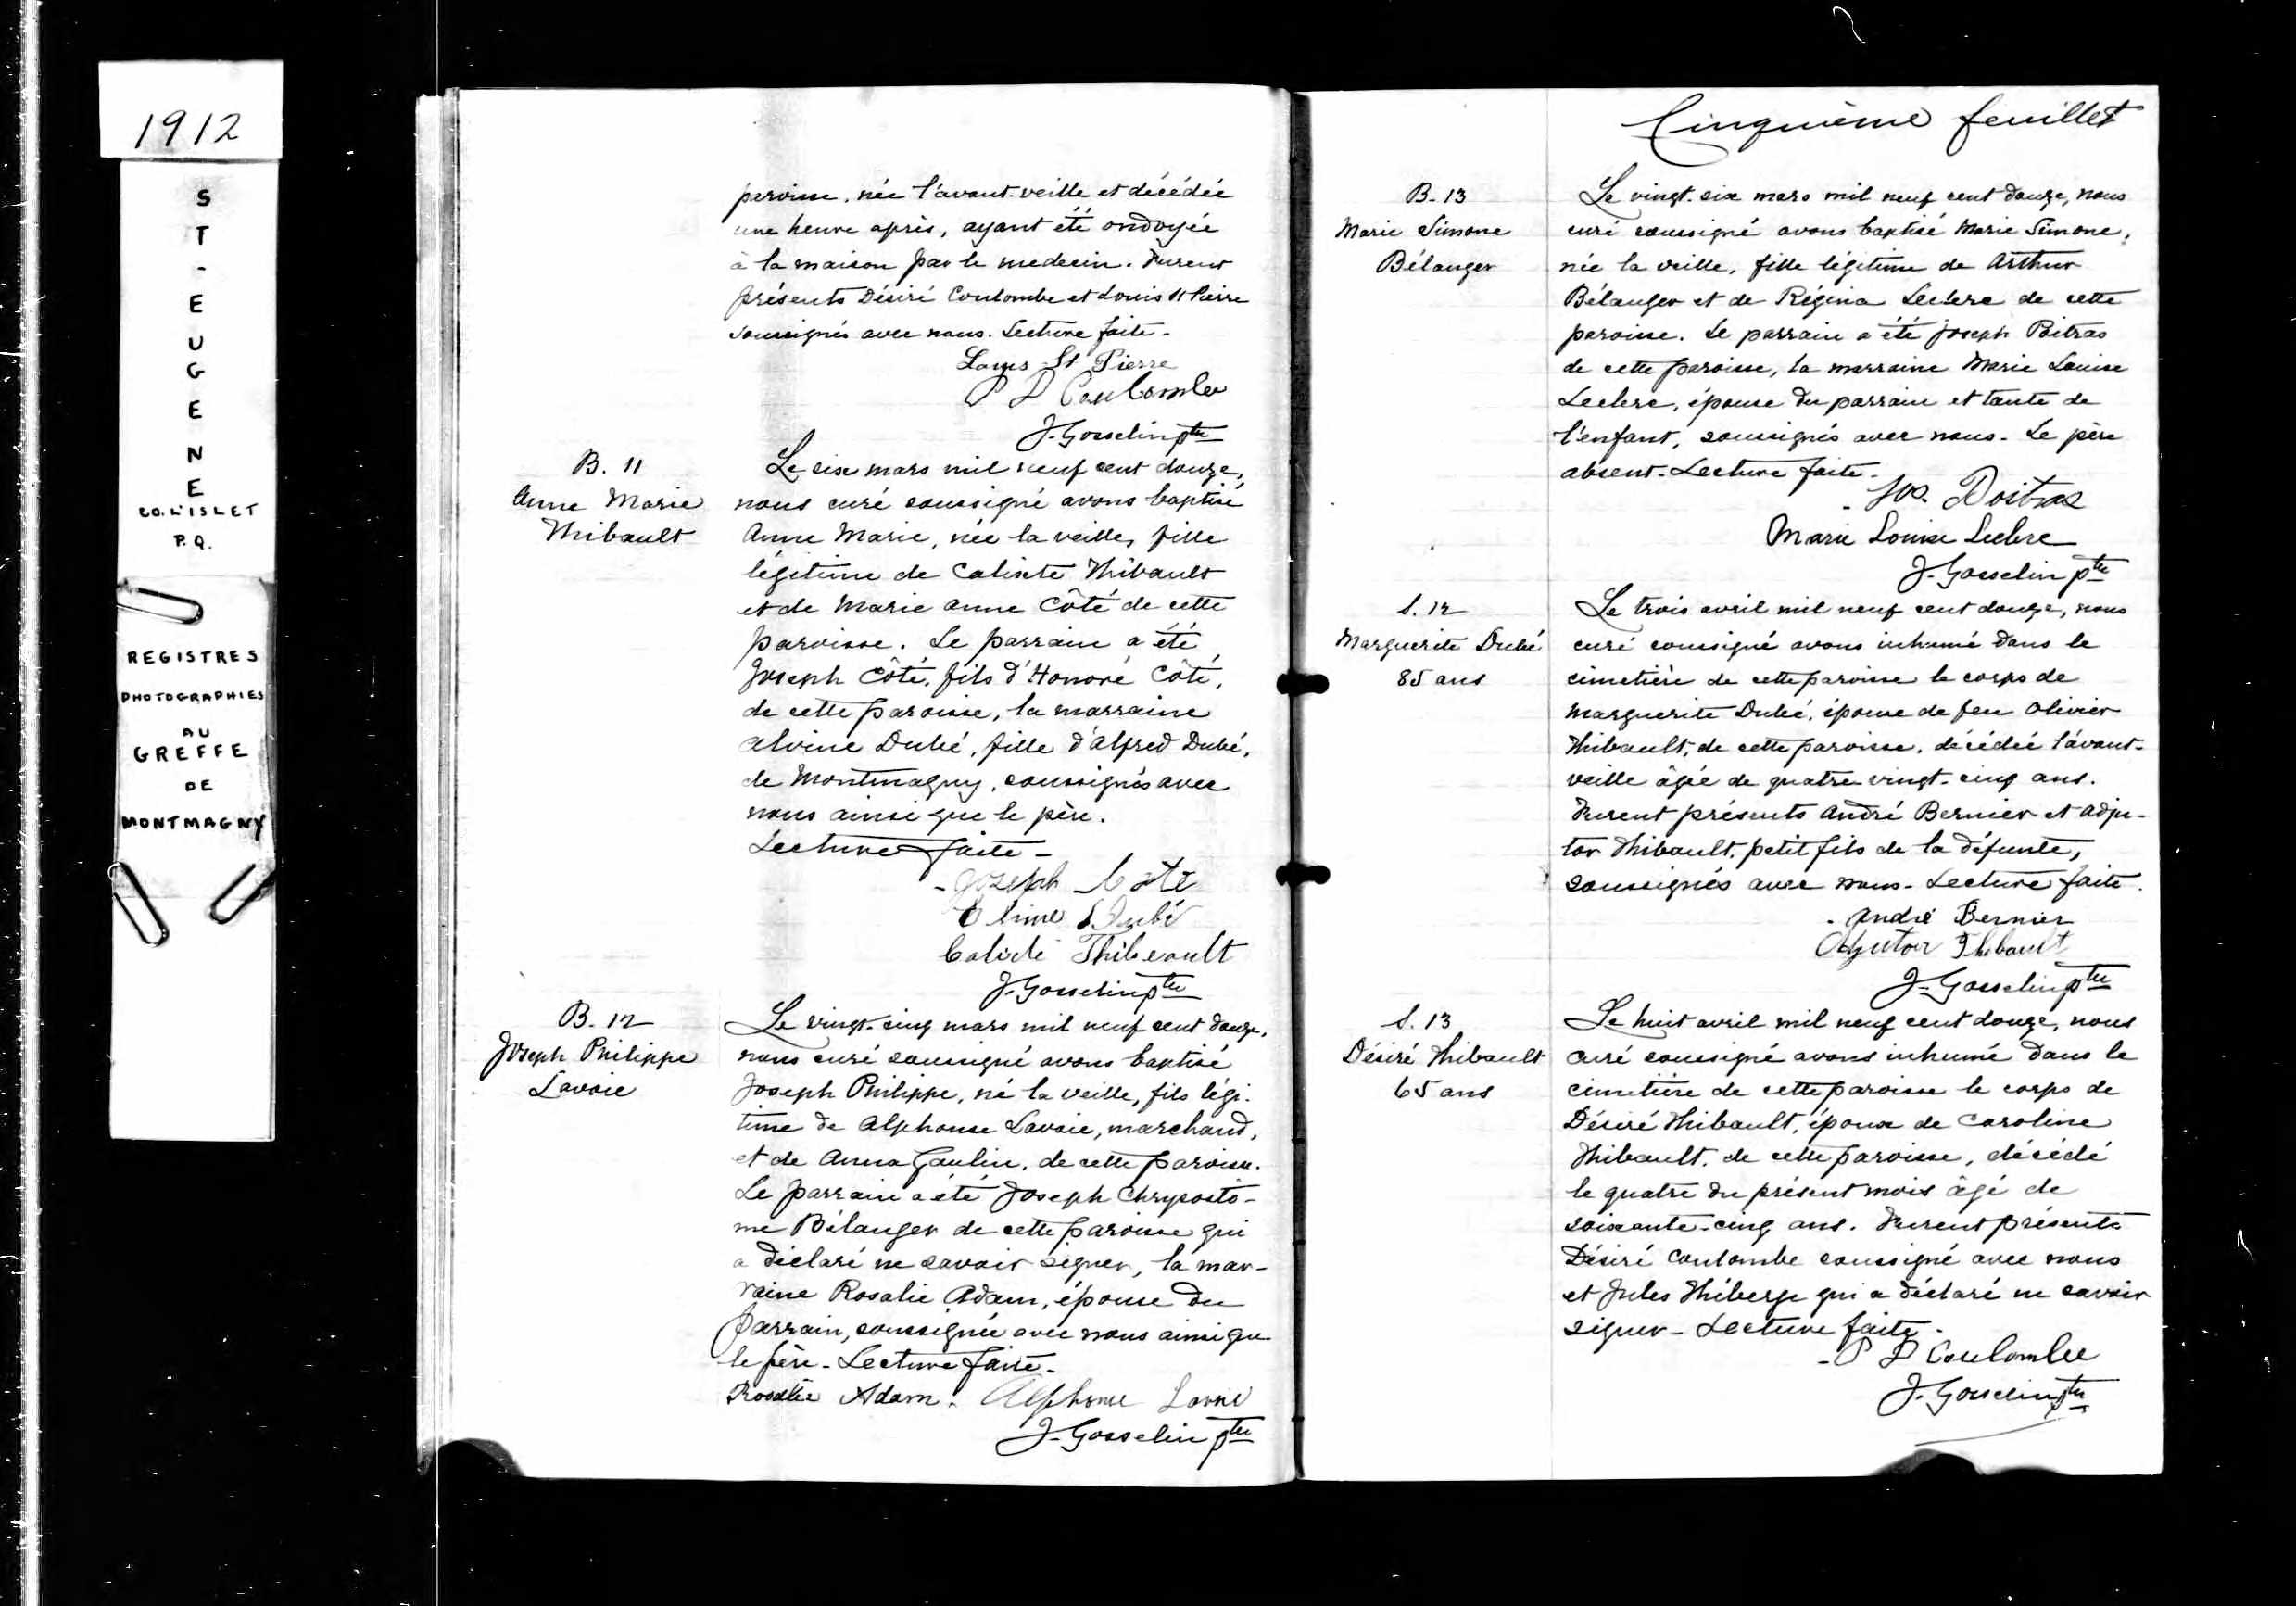 1912
ST-EUGENE
CO. L'ISLET
P.Q.
REGISTRES
PHOTOGRAPHIES
AU
GREFFE
DE
MONTMAGNY
paroisse, née l'avant-veille et décédée
une heure après, ayant été ondoyée
à la maison par le medecin. Furent
présents Désiré Coulombe et Louis St Pierre
soussignés avec nous. Lecture faite-
Louis St Pierre
P D Coulombe
J. Gosselin ptre
B. 11
Anne Marie
Thibault
Le six mars mil neuf cent douze,
nous curé soussigné avons baptisé
Anne Marie, née la veille, fille
légitime de Calixte Thibault
et de Marie Anne Côté de cette
paroisse. Le parrain a été
Joseph Côté, fils d'Honoré Côté,
de cette paroisse, la marraine
Alvine Dubé, fille d'Alfred Dubé,
de Montmagny, soussignés avec
nous ainsi que le père.
Lecture faite-
Joseph Cote
Dubé
Thibeault
J. Gosselin ptre
B. 12
Joseph Philippe
Lavoie
Le vingt-cinq mars mil neuf cent douze,
nous curé soussigné avons baptisé
Joseph Philippe, né la veille, fils légi-
time de Alphonse Lavoie, marchand,
et de Anna Gaulin, de cette paroisse.
Le parrain a été Joseph Chrysosto-
me Bélanger de cette paroisse qui
a déclaré ne savoir signer, la mar-
raine Rosalie Adam, épouse du
parrain, soussignée avec nous ainsi que
le père - Lecture faite-
Rosalie Adam. Alphonse Lavoie
J. Gosselin ptre
Cinquième feuillet
B-13
Marie Simone
Bélanger
Le vingt-six mars mil neuf cent douze, nous
curé soussigné avons baptisé Marie Simone,
née la veille, fille légitime de Arthur
Bélanger et de Régina Leclerc de cette
paroisse. Le parrain a été Joseph Poitras
de cette paroisse, la marraine Marie Louise
Leclerc, épouse du parrain et tante de
l'enfant, soussignés avec nous- Le père
absent- Lecture faite-
Jos. Poitras
Marie Louise Leclerc
J. Gosselin ptre
S. 12
Marguerite Dubé
85 ans
Le trois avril mil neuf cent douze, nous
curé soussigné avons inhumé dans le
cimetière de cette paroisse le corps de
Marguerite Dubé, épouse de feu Olivier
Thibault, de cette paroisse, décédée l'avant-
veille âgée de quatre vingt-cinq ans.
Furent présents André Bernier et Adju-
tor Thibault, petit fils de la défunte,
soussignés avec nous- Lecture faite.
André Bernier
Adjutor Thibault
J. Gosselin ptre
S. 13
Désiré Thibault
65 ans
Le huit avril mil neuf cent douze, nous
curé soussigné avons inhumé dans le
cimetière de cette paroisse le corps de
Désiré Thibault, époux de Caroline
Thibault, de cette paroisse, décédé
le quatre du présent mois âgé de
soixante-cinq ans. Furent présents
Désiré Coulombe soussigné avec nous
et Jules Théberge qui a déclaré ne savoir
signer- Lecture faite-
P D Coulombe
J. Gosselin ptre